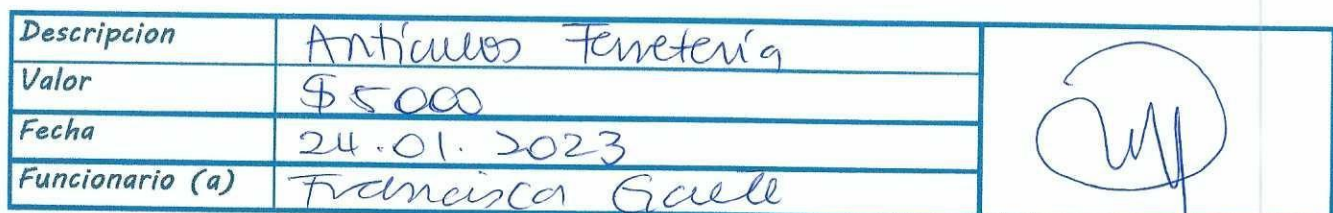 Descripcion Artículos Ferretería
Valor $5000
Fecha 24.01.2023
Funcionario (a) Francisca Gaete